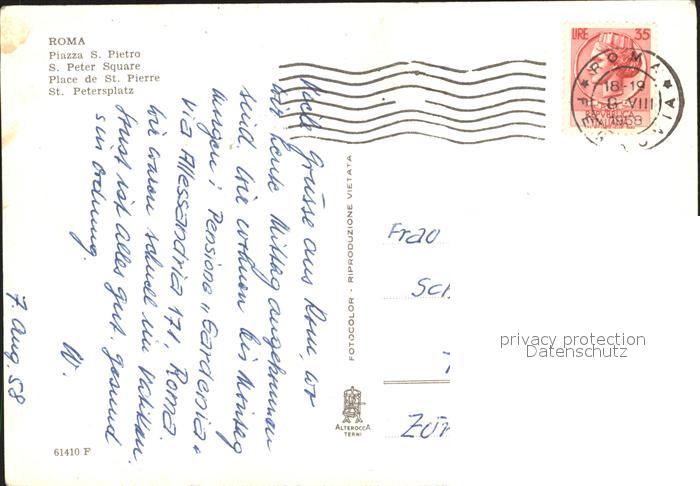 ROMA
Piazza S. Pietro
S. Peter Square
Place de St. Pierre
St. Petersplatz
LIRE 35
ROMA
18-19
8 VIII
1958
FERROVIA
REPVBBLICA
ITALIANA
Viele Grüsse aus Rom, wo
wir heute Mittag angekommen
sind. Wir wohnen bis Montag
morgen i Pensione "Gardenia"
via Allessandria 171 Roma.
Wir waren schnell im Vatikan.
Sonst ist alles gut gesund
s in Ordnung.
W.
7. Aug. 58
FOTOCOLOR - RIPRODUZIONE VIETATA
ALTEROCCA
TERNI
Frau
Sch
Zür
privacy protection
Datenschutz
61410 F